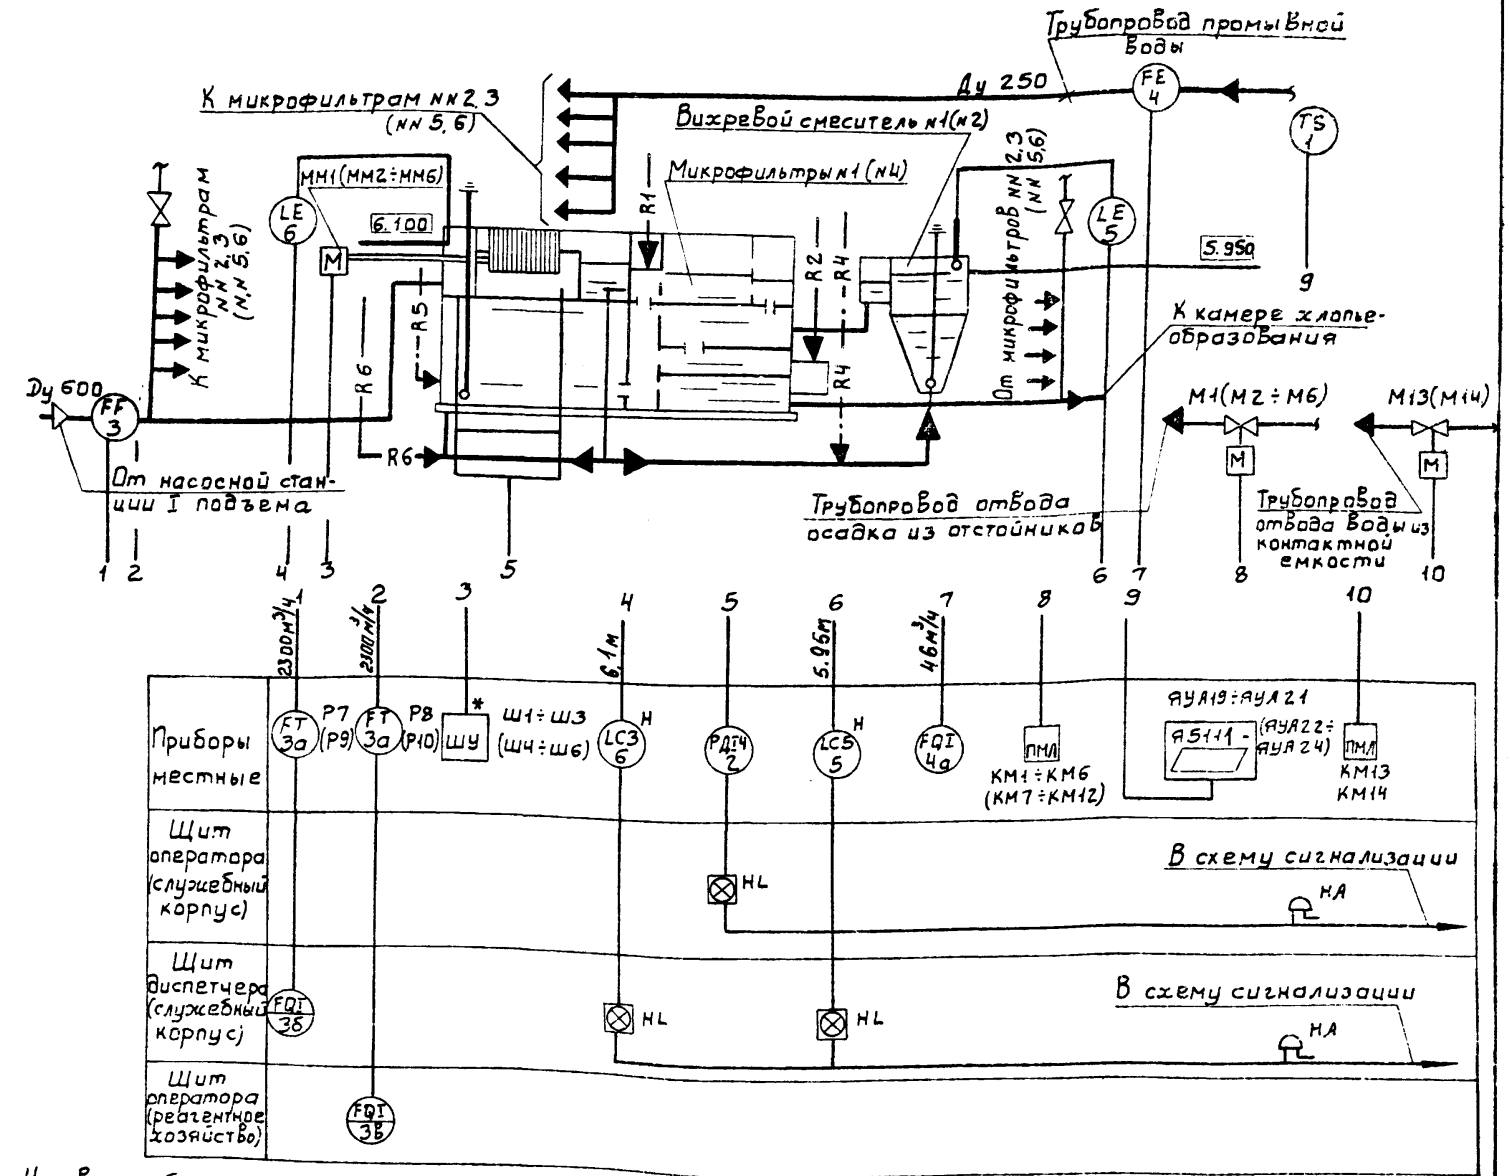 Трубопровод промывной
воды
Ду 250
FE
4
TS
1
К микрофильтрам NN 2,3
(NN 5,6)
Вихревой смеситель N1(N2)
ММ1(ММ2÷ММ6)
Микрофильтры N1 (N4)
От микрофильтров NN 2,3
(NN 5,6)
К микрофильтрам
NN 2,3
(NN 5,6)
LE
6
6.100
М
R1
R2
R4
R4
R5
R6
R6
LE
5
5.950
9
К камере хлопье-
образования
Ду 600
FE
3
От насосной стан-
ции I подъема
М1(М2÷М6)
М13(М14)
М
М
Трубопровод отвода
осадка из отстойников
Трубопровод
отвода воды из
контактной
емкости
1 2 4 3 5 6 7 8 10
1 2 3 4 5 6 7 8 9 10
2300м³/ч
2300м³/ч
6.1м
5.95м
46м³/ч
Приборы
местные
FT
3а
Р7
(Р9)
FT
3а
Р8
(Р10)
*
ШУ
Ш1÷Ш3
(Ш4÷Ш6)
Н
LCS
6
РДГЧ
2
Н
LCS
5
FQI
4а
ПМЛ
КМ1÷КМ6
(КМ7÷КМ12)
ЯУЛ19÷ЯУЛ21
(ЯУЛ22÷
ЯУЛ24)
Я5111-
ПМЛ
КМ13
КМ14
Щит
оператора
(служебный
корпус)
HL
НА
В схему сигнализации
Щит
диспетчера
(служебный
корпус)
FQI
3б
HL
HL
НА
В схему сигнализации
Щит
оператора
(реагентное
хозяйство)
FQI
3в